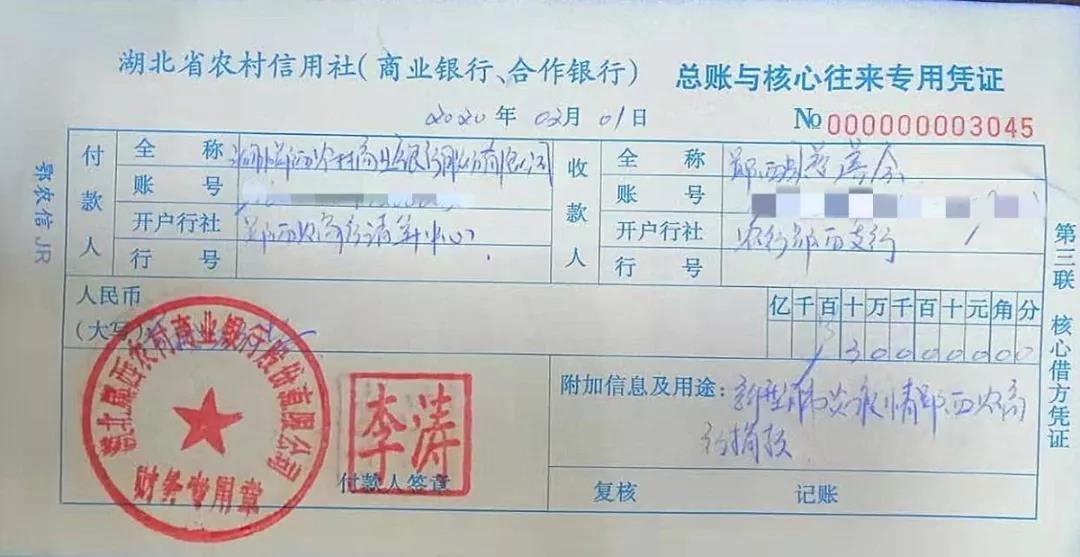 湖北省农村信用社(商业银行、合作银行) 总账与核心往来专用凭证
2020年 02月 01日 No 000000003045
付款人 全称 湖北郧西农村商业银行股份有限公司 收款人 全称 郧西县慈善会
账号 账号
开户行社 郧西农商行清算中心 开户行社 农行郧西支行
行号 行号
人民币
(大写)
亿千百十万千百十元角分
¥30000000
附加信息及用途: 新型肺炎疫情郧西农商
行捐款
湖北郧西农村商业银行股份有限公司
财务专用章
李涛
付款人签章
复核 记账
鄂农信 JR
第三联 核心借方凭证